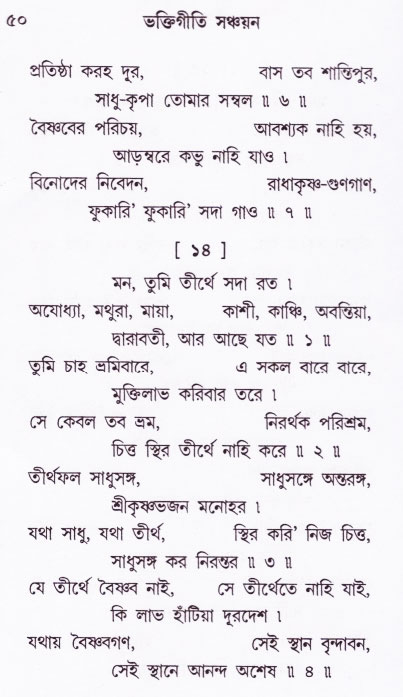 ৫০ ভক্তিগীতি সঞ্চয়ন
প্রতিষ্ঠা করহ দূর, বাস তব শান্তিপুর,
সাধু-কৃপা তোমার সম্বল ॥ ৬ ॥
বৈষ্ণবের পরিচয়, আবশ্যক নাহি হয়,
আড়ম্বরে কভু নাহি যাও ।
বিনোদের নিবেদন, রাধাকৃষ্ণ-গুণগাণ,
ফুকারি’ ফুকারি’ সদা গাও ॥ ৭ ॥
[ ১৪ ]
মন, তুমি তীর্থে সদা রত ।
অযোধ্যা, মথুরা, মায়া, কাশী, কাঞ্চি, অবন্তিয়া,
দ্বারাবতী, আর আছে যত ॥ ১ ॥
তুমি চাহ ভ্রমিবারে, এ সকল বারে বারে,
মুক্তিলাভ করিবার তরে ।
সে কেবল তব ভ্রম, নিরর্থক পরিশ্রম,
চিত্ত স্থির তীর্থে নাহি করে ॥ ২ ॥
তীর্থফল সাধুসঙ্গ, সাধুসঙ্গে অন্তরঙ্গ,
শ্রীকৃষ্ণভজন মনোহর ।
যথা সাধু, যথা তীর্থ, স্থির করি’ নিজ চিত্ত,
সাধুসঙ্গ কর নিরন্তর ॥ ৩ ॥
যে তীর্থে বৈষ্ণব নাই, সে তীর্থেতে নাহি যাই,
কি লাভ হাঁটিয়া দূরদেশ ।
যথায় বৈষ্ণবগণ, সেই স্থান বৃন্দাবন,
সেই স্থানে আনন্দ অশেষ ॥ ৪ ॥